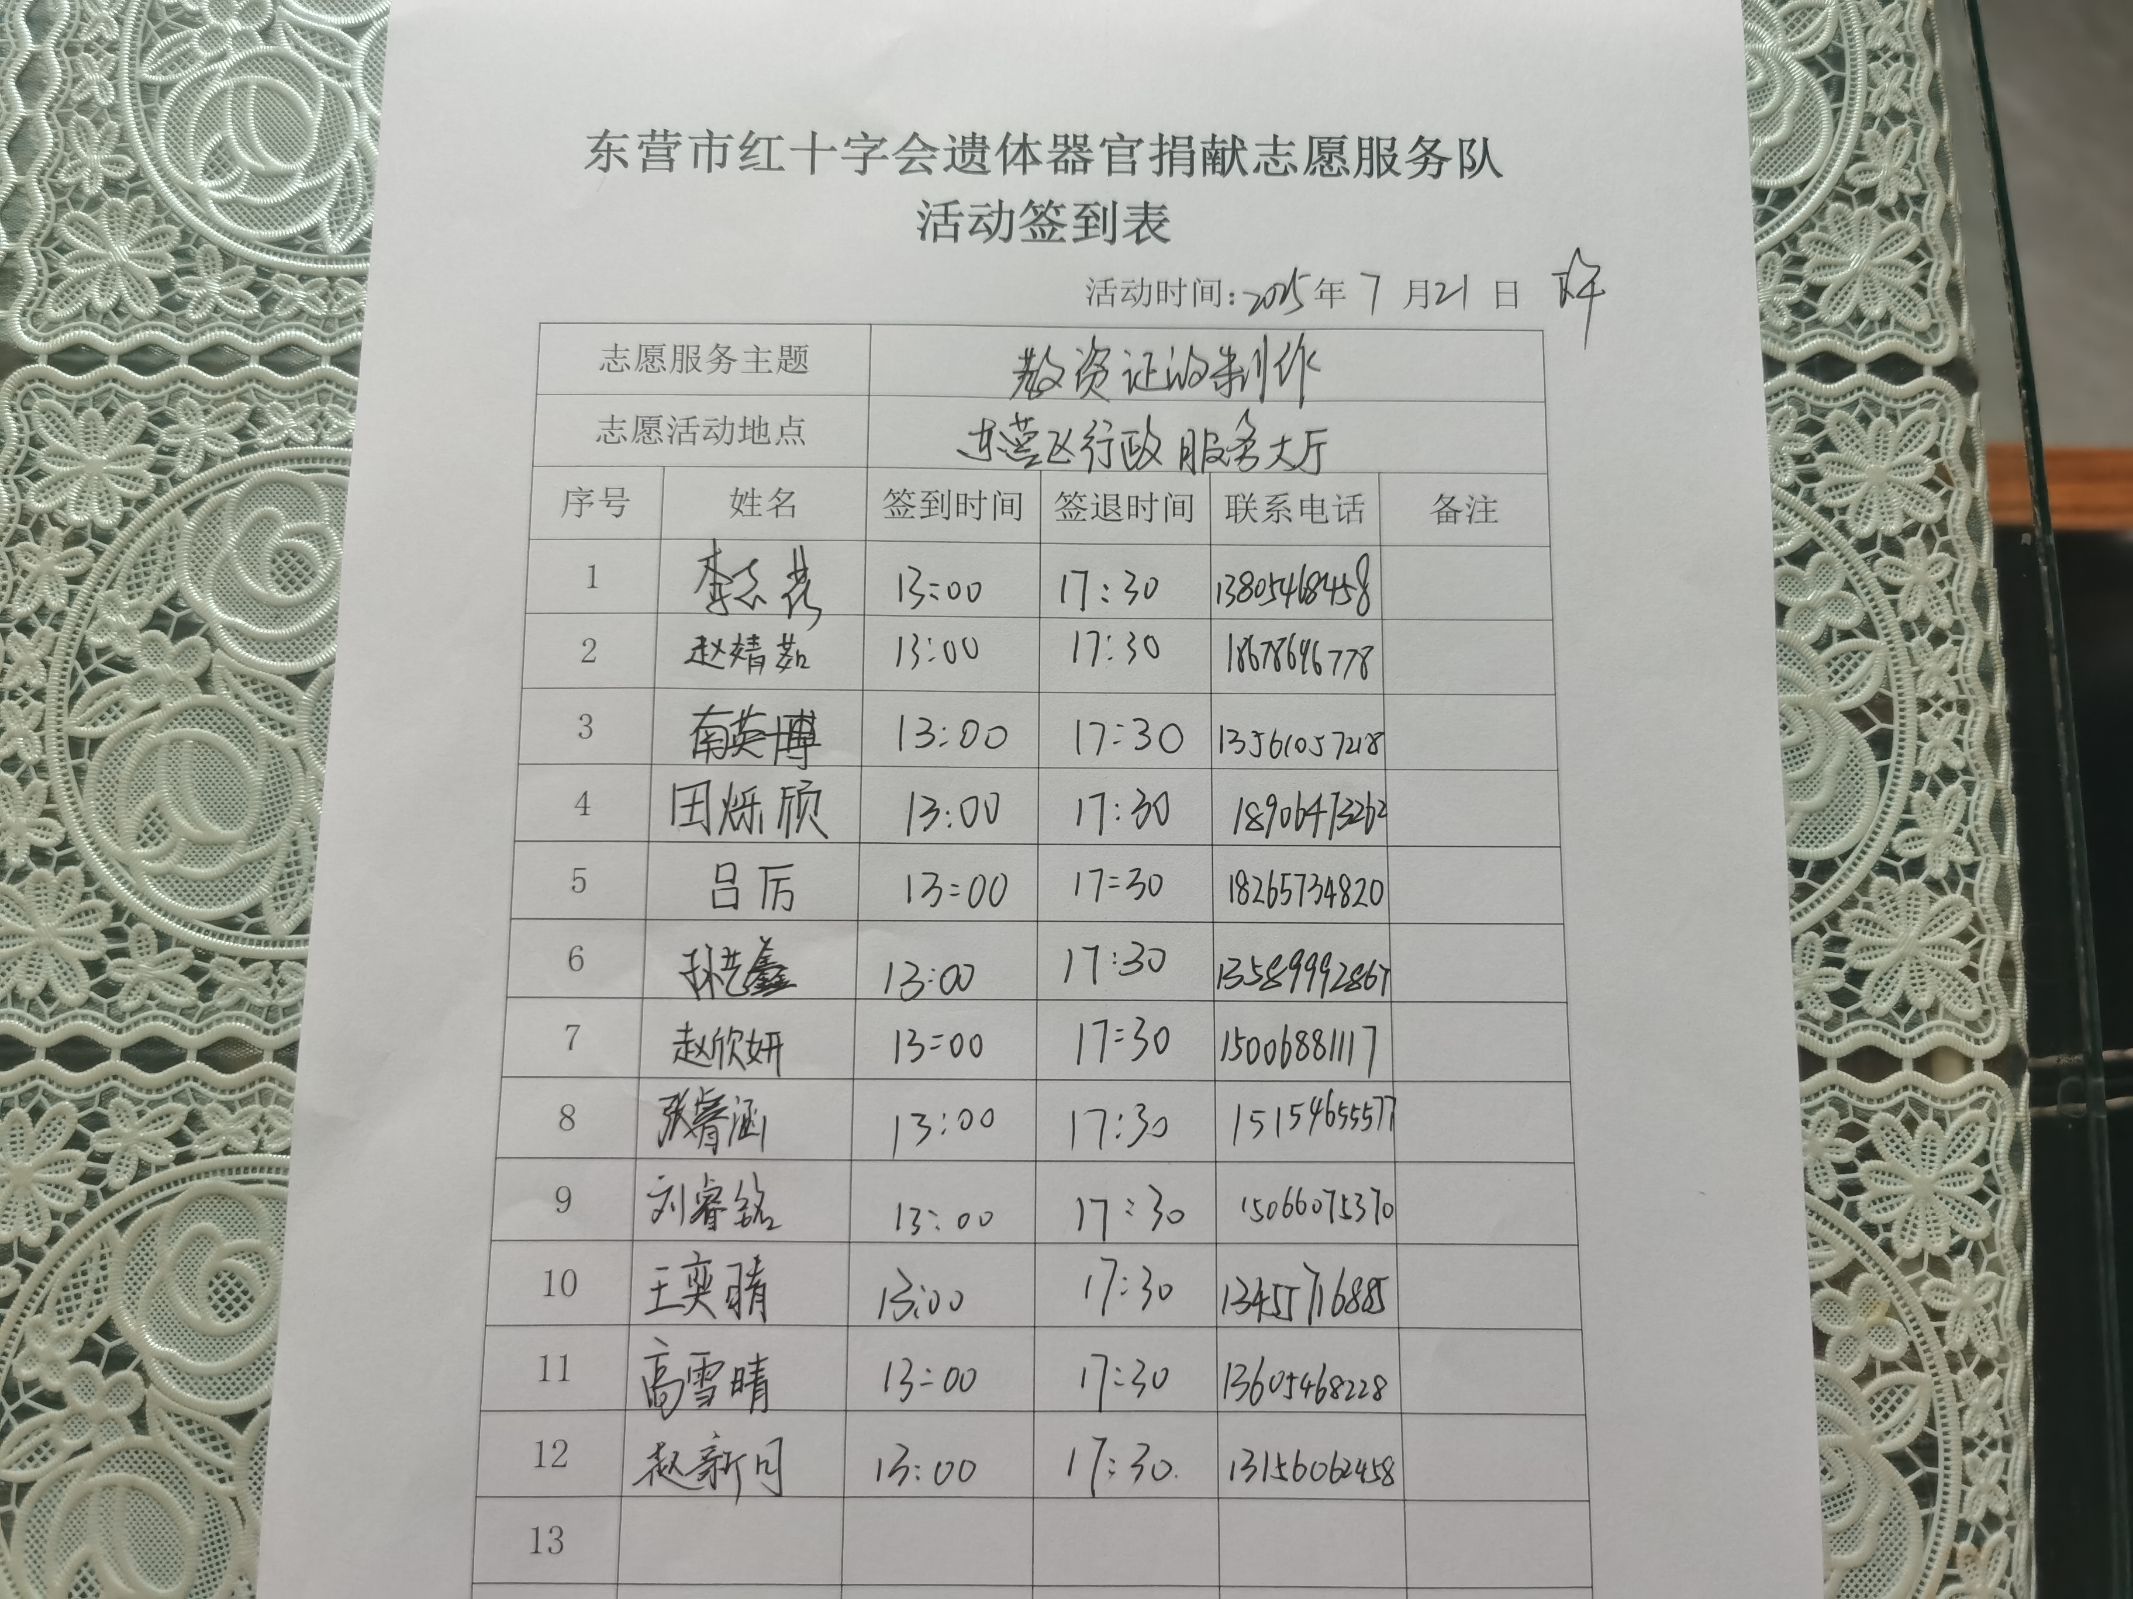 东营市红十字会遗体器官捐献志愿服务队
活动签到表
活动时间:2025年 7 月21 日 下午
志愿服务主题 教资证的制作
志愿活动地点 东营区行政服务大厅
序号 姓名 签到时间 签退时间 联系电话 备注
1 李志 13:00 17:30 13805468458
2 赵婧茹 13:00 17:30 18678646778
3 南英博 13:00 17:30 13561057218
4 田烁颀 13:00 17:30 18906473262
5 吕厉 13:00 17:30 18265734820
6 孙艺鑫 13:00 17:30 13589992867
7 赵欣妍 13:00 17:30 15006881117
8 张睿涵 13:00 17:30 15154655577
9 刘睿铭 13:00 17:30 15066075370
10 王奕晴 13:00 17:30 13455716885
11 高雪晴 13:00 17:30 13605468228
12 赵新同 13:00 17:30 13156062458
13